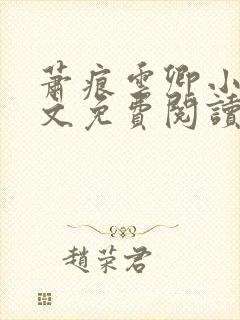 蕭痕雲卿小
文免費閱讀
趙荣君